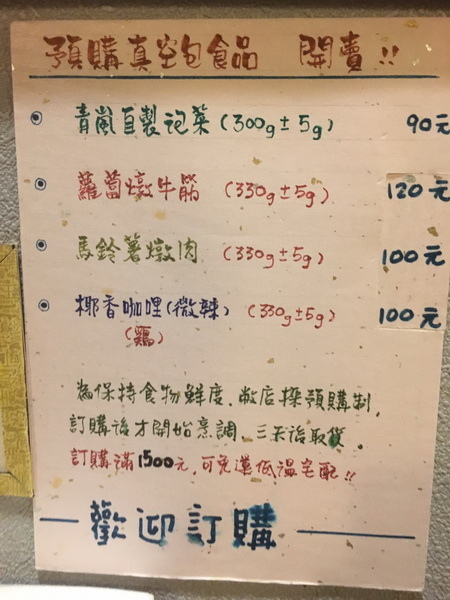 預購真空包食品 開賣!!
青嵐自製泡菜(300g±5g) 90元
蘿蔔燉牛筋 (330g±5g) 120元
馬鈴薯燉肉 (330g±5g) 100元
椰香咖哩(微辣) (330g±5g) 100元
(鷄)
為保持食物鮮度,敝店採預購制,
訂購後才開始烹調,三天後取貨。
訂購滿1500元,可免運低溫宅配!!
歡迎訂購